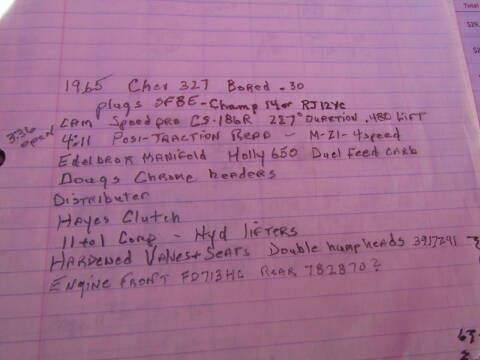 Total
1965 Chev 327 Bored .30
plugs SFBE-Champ 14 or RJ12YC
CAM Speed pro CS-186R 227° DURATION .480 LIFT
4:11 POSI-TRACTION READ - M-21-4speed
Edelbrok MANifold Holly 650 Duel Feed CARB
Dougs Chrome headers
Distributer
Hayes Clutch
11 to 1 Comp - Hyd lifters
HARDENED VANES+SEATS Double hump heads 3917291
ENGINE FRONT FD713HG REAR 782870?